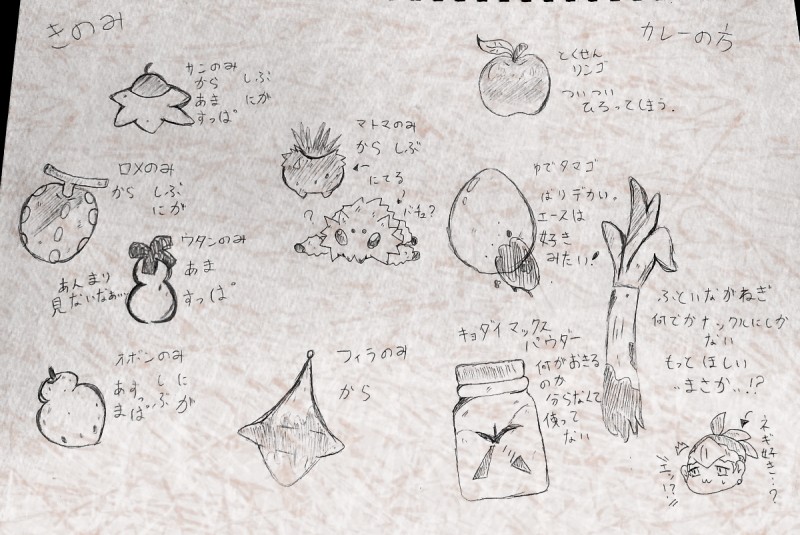 きのみ
カンのみ
から しぶ
あま にが
すっぱ
ロメのみ
から しぶ
にが
マトマのみ
から しぶ
にてる
?
バチュ?
ウタンのみ
あま
すっぱ
あんまり
見ないなぁ…
ネポンのみ
あま すっぱ しぶ にが
フィラのみ
から
カレーの方
とくせん
リンゴ
ついつい
ひろってしまう.
ゆでタマゴ
ばりデカい。
エースは
好き
みたい!
キョダイマックス
パウダー
何がおきる
のか
分らなくて
使って
ない
ふといながねぎ
何でかナックルにしか
ない
もってほしい
"まさか"!?
ネギ好き…?
"エッ!?"